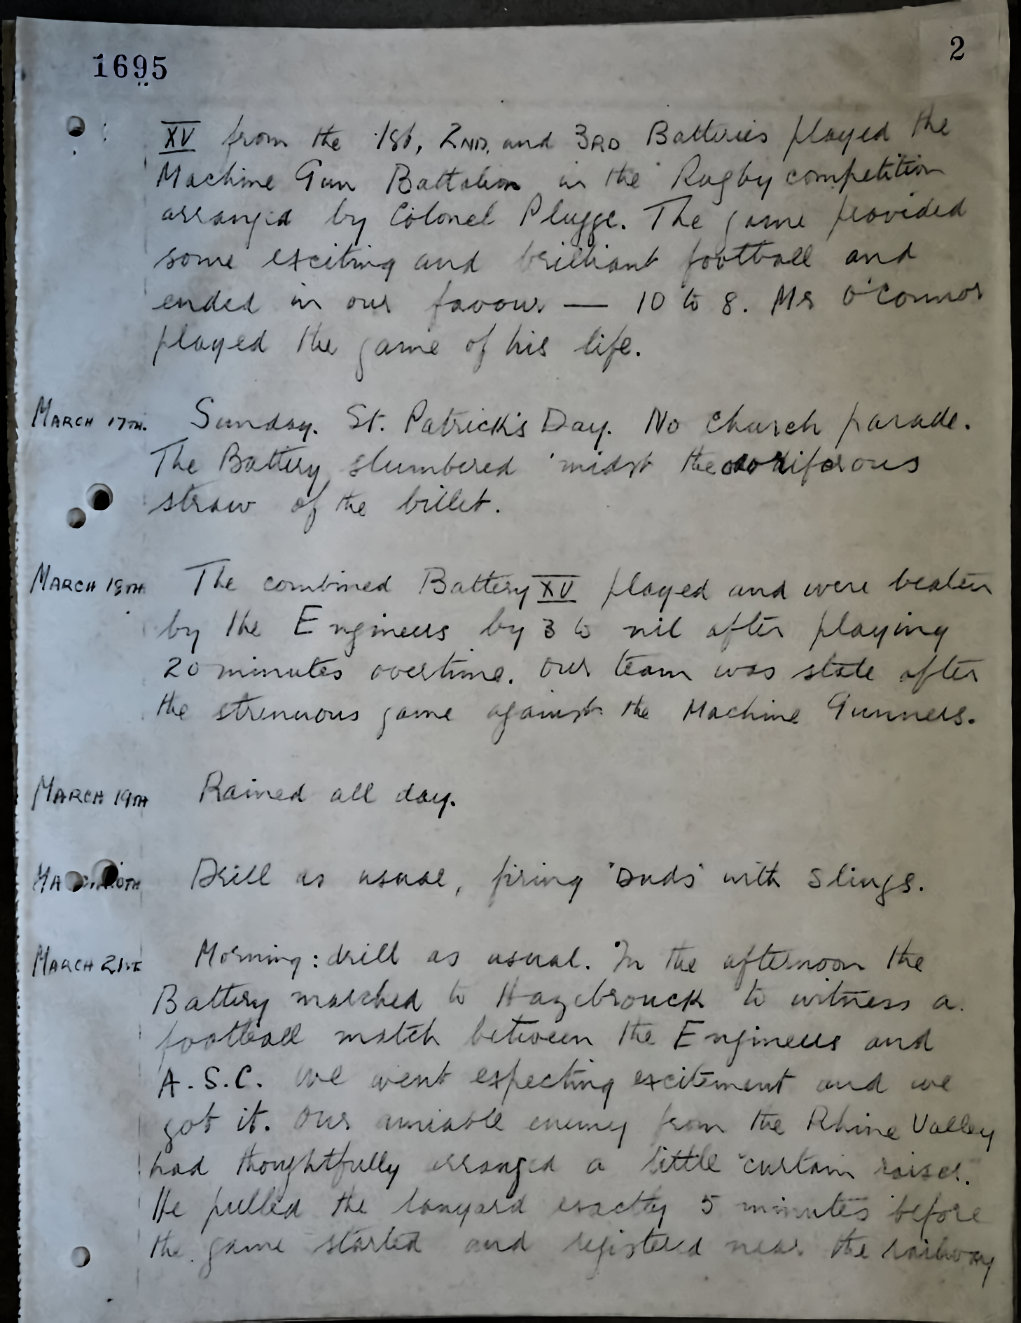 1695
2
XV from the 1st, 2ND, and 3RD Batteries played the
Machine Gun Battalion in the Rugby competition
arranged by Colonel Plugge. The game provided
some exciting and brilliant football and
ended in our favour — 10 to 8. Mr O'Connor
played the game of his life.
MARCH 17TH. Sunday. St. Patrick's Day. No church parade.
The Battery slumbered 'midst the odoriferous
straw of the billet.
MARCH 18TH The combined Battery XV played and were beaten
by the Engineers by 3 to nil after playing
20 minutes overtime. Our team was stale after
the strenuous game against the Machine Gunners.
MARCH 19TH Rained all day.
Drill as usual, firing 'Duds' with slings.
MARCH 21ST Morning: drill as usual. In the afternoon the
Battery marched to Hazebrouck to witness a
football match between the Engineers and
A.S.C. We went expecting excitement and we
got it. Our amiable enemy from the Rhine Valley
had thoughtfully arranged a little "curtain raiser".
He pulled the lanyard exactly 5 minutes before
the game started and registered near the railway